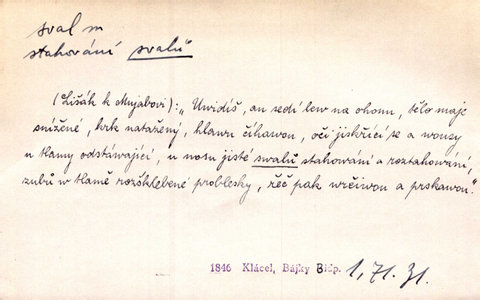 sval m
stahování svalů
(Lišák k Mujabovi): „Uwidíš, an sedí lew na ohonu, tělo maje
snížené, krk natažený, hlawu číhawou, oči jiskřící se a wousy
u tlamy odstáwající, u nosu jisté swalů stahování a roztahowání,
zubů w tlamě rozšklebené problesky, řeč pak wrčiwou a prskawou."
1846 Klácel, Bájky Bidp. 1, 71. 31.